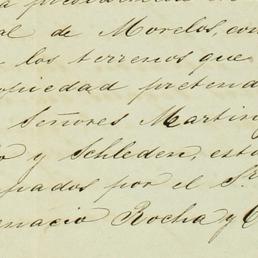 al de Morelos, con
los terrenos que
opiedad pretend
Señores Martin
o y Schleden, est
pados por el Sr
enacio Rocha y C